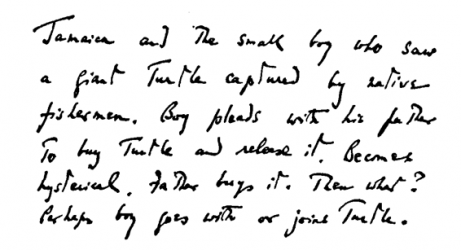 Jamaica and The small boy who saw
a giant Turtle captured by native
fishermen. Boy pleads with his father
To buy Turtle and release it. Becomes
hysterical. Father buys it. Then what?
Perhaps boy goes with or joins Turtle.